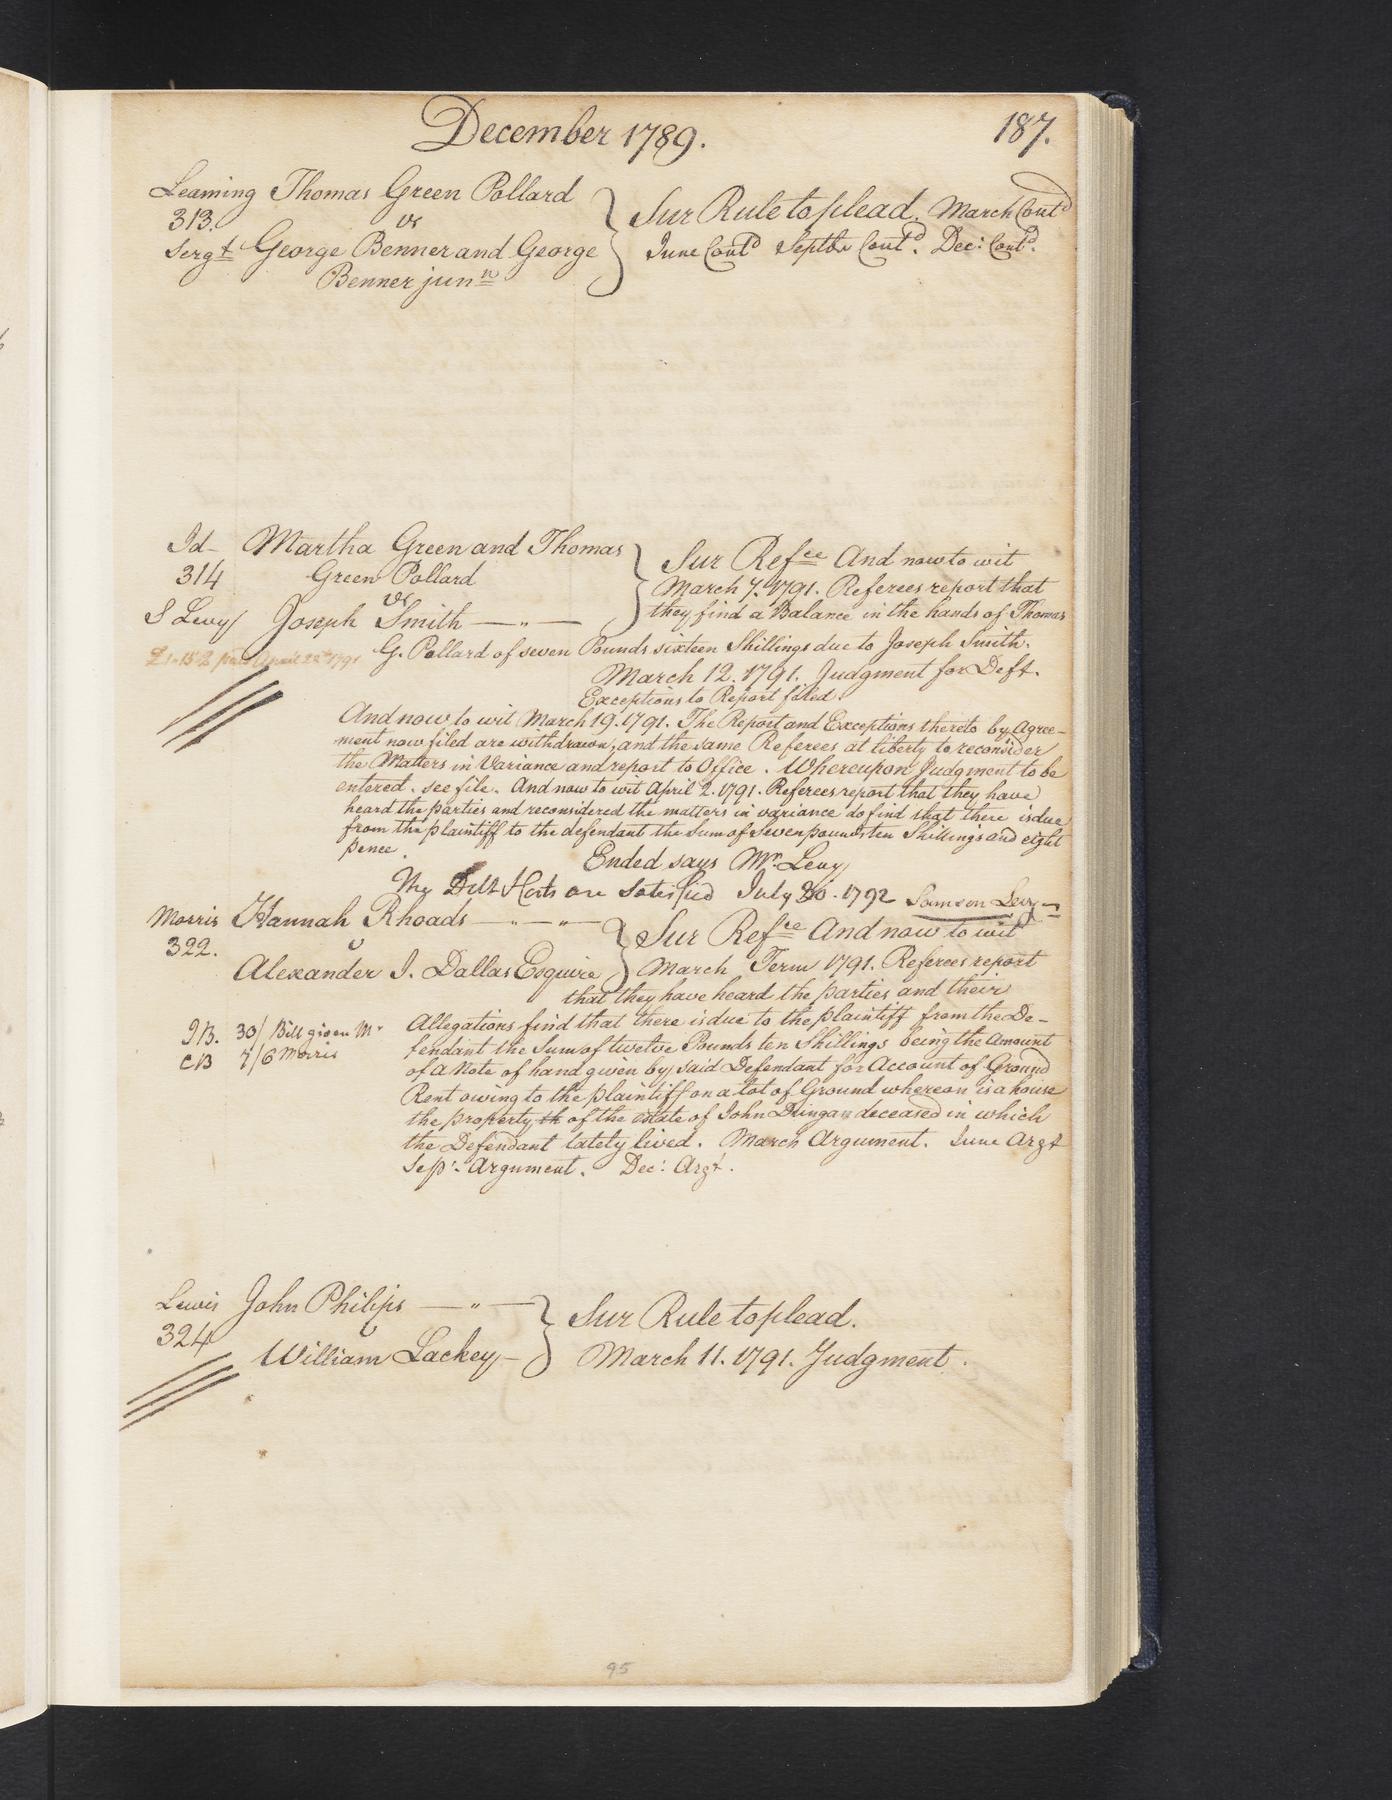 December 1789.
187.
Leaming Thomas Green Pollard
313. vs
Sergt George Benner and George
Benner junr
Sur Rule to plead. March Contd
June Contd Septbr Contd. Dec: Contd.
Id- Martha Green and Thomas
314 Green Pollard
vs
S Levy Joseph Smith
Sur Refce And now to wit
March 7. 1791. Referees report that
they find a Balance in the hands of Thomas
G. Pollard of seven Pounds sixteen Shillings due to Joseph Smith.
paid April 1791
March 12. 1791. Judgment for Deft.
Exceptions to Report filed.
And now to wit March 19. 1791. The Report and Exceptions thereto by Agree-
ment now filed are withdrawn, and the same Referees at liberty to reconsider
the Matters in Variance and report to Office. Whereupon Judgment to be
entered. see file. And now to wit April 2. 1791. Referees report that they have
heard the parties and reconsidered the matters in variance do find that there is due
from the plaintiff to the defendant the Sum of Seven pounds ten Shillings and eight
pence.
Ended says Mr. Levy
My Debt & Costs are Satisfied July 30. 1792 Samson Levy
Morris Hannah Rhoads
322. v
Alexander J. Dallas Esquire
Sur Refce And now to wit
March Term 1791. Referees report
that they have heard the parties and their
Allegations find that there is due to the plaintiff from the De-
fendant the Sum of twelve Pounds ten Shillings being the Amount
of a Note of hand given by said Defendant for Account of Ground
Rent owing to the plaintiff on a lot of Ground whereon is a house
the property th of the estate of John Dungan deceased in which
the Defendant lately lived. March Argument. June Argt
Sepr. Argument. Dec: Argt.
JB. 30/ Bill given Mr
CB 7/6 Morris
Lewis John Philips
324 v
William Lackey
Sur Rule to plead.
March 11. 1791. Judgment.
95